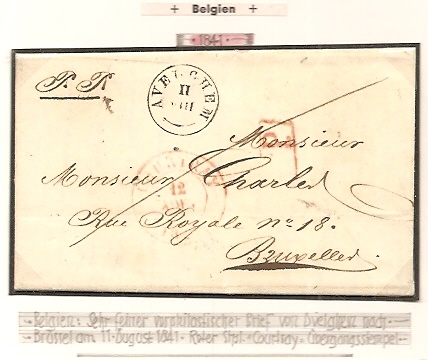 + Belgien +
· 1841 ·
P. P.
AVELGHEM
II
VIII
Monsieur
Monsieur Charles
12
Rue Royale nº 18.
Bruxelles
Belgien: Sehr feiner vorphilatelistischer Brief von Avelghem nach
Brüssel am 11. August 1841 - Roter Stpl. - Courtray - Übergangsstempel -